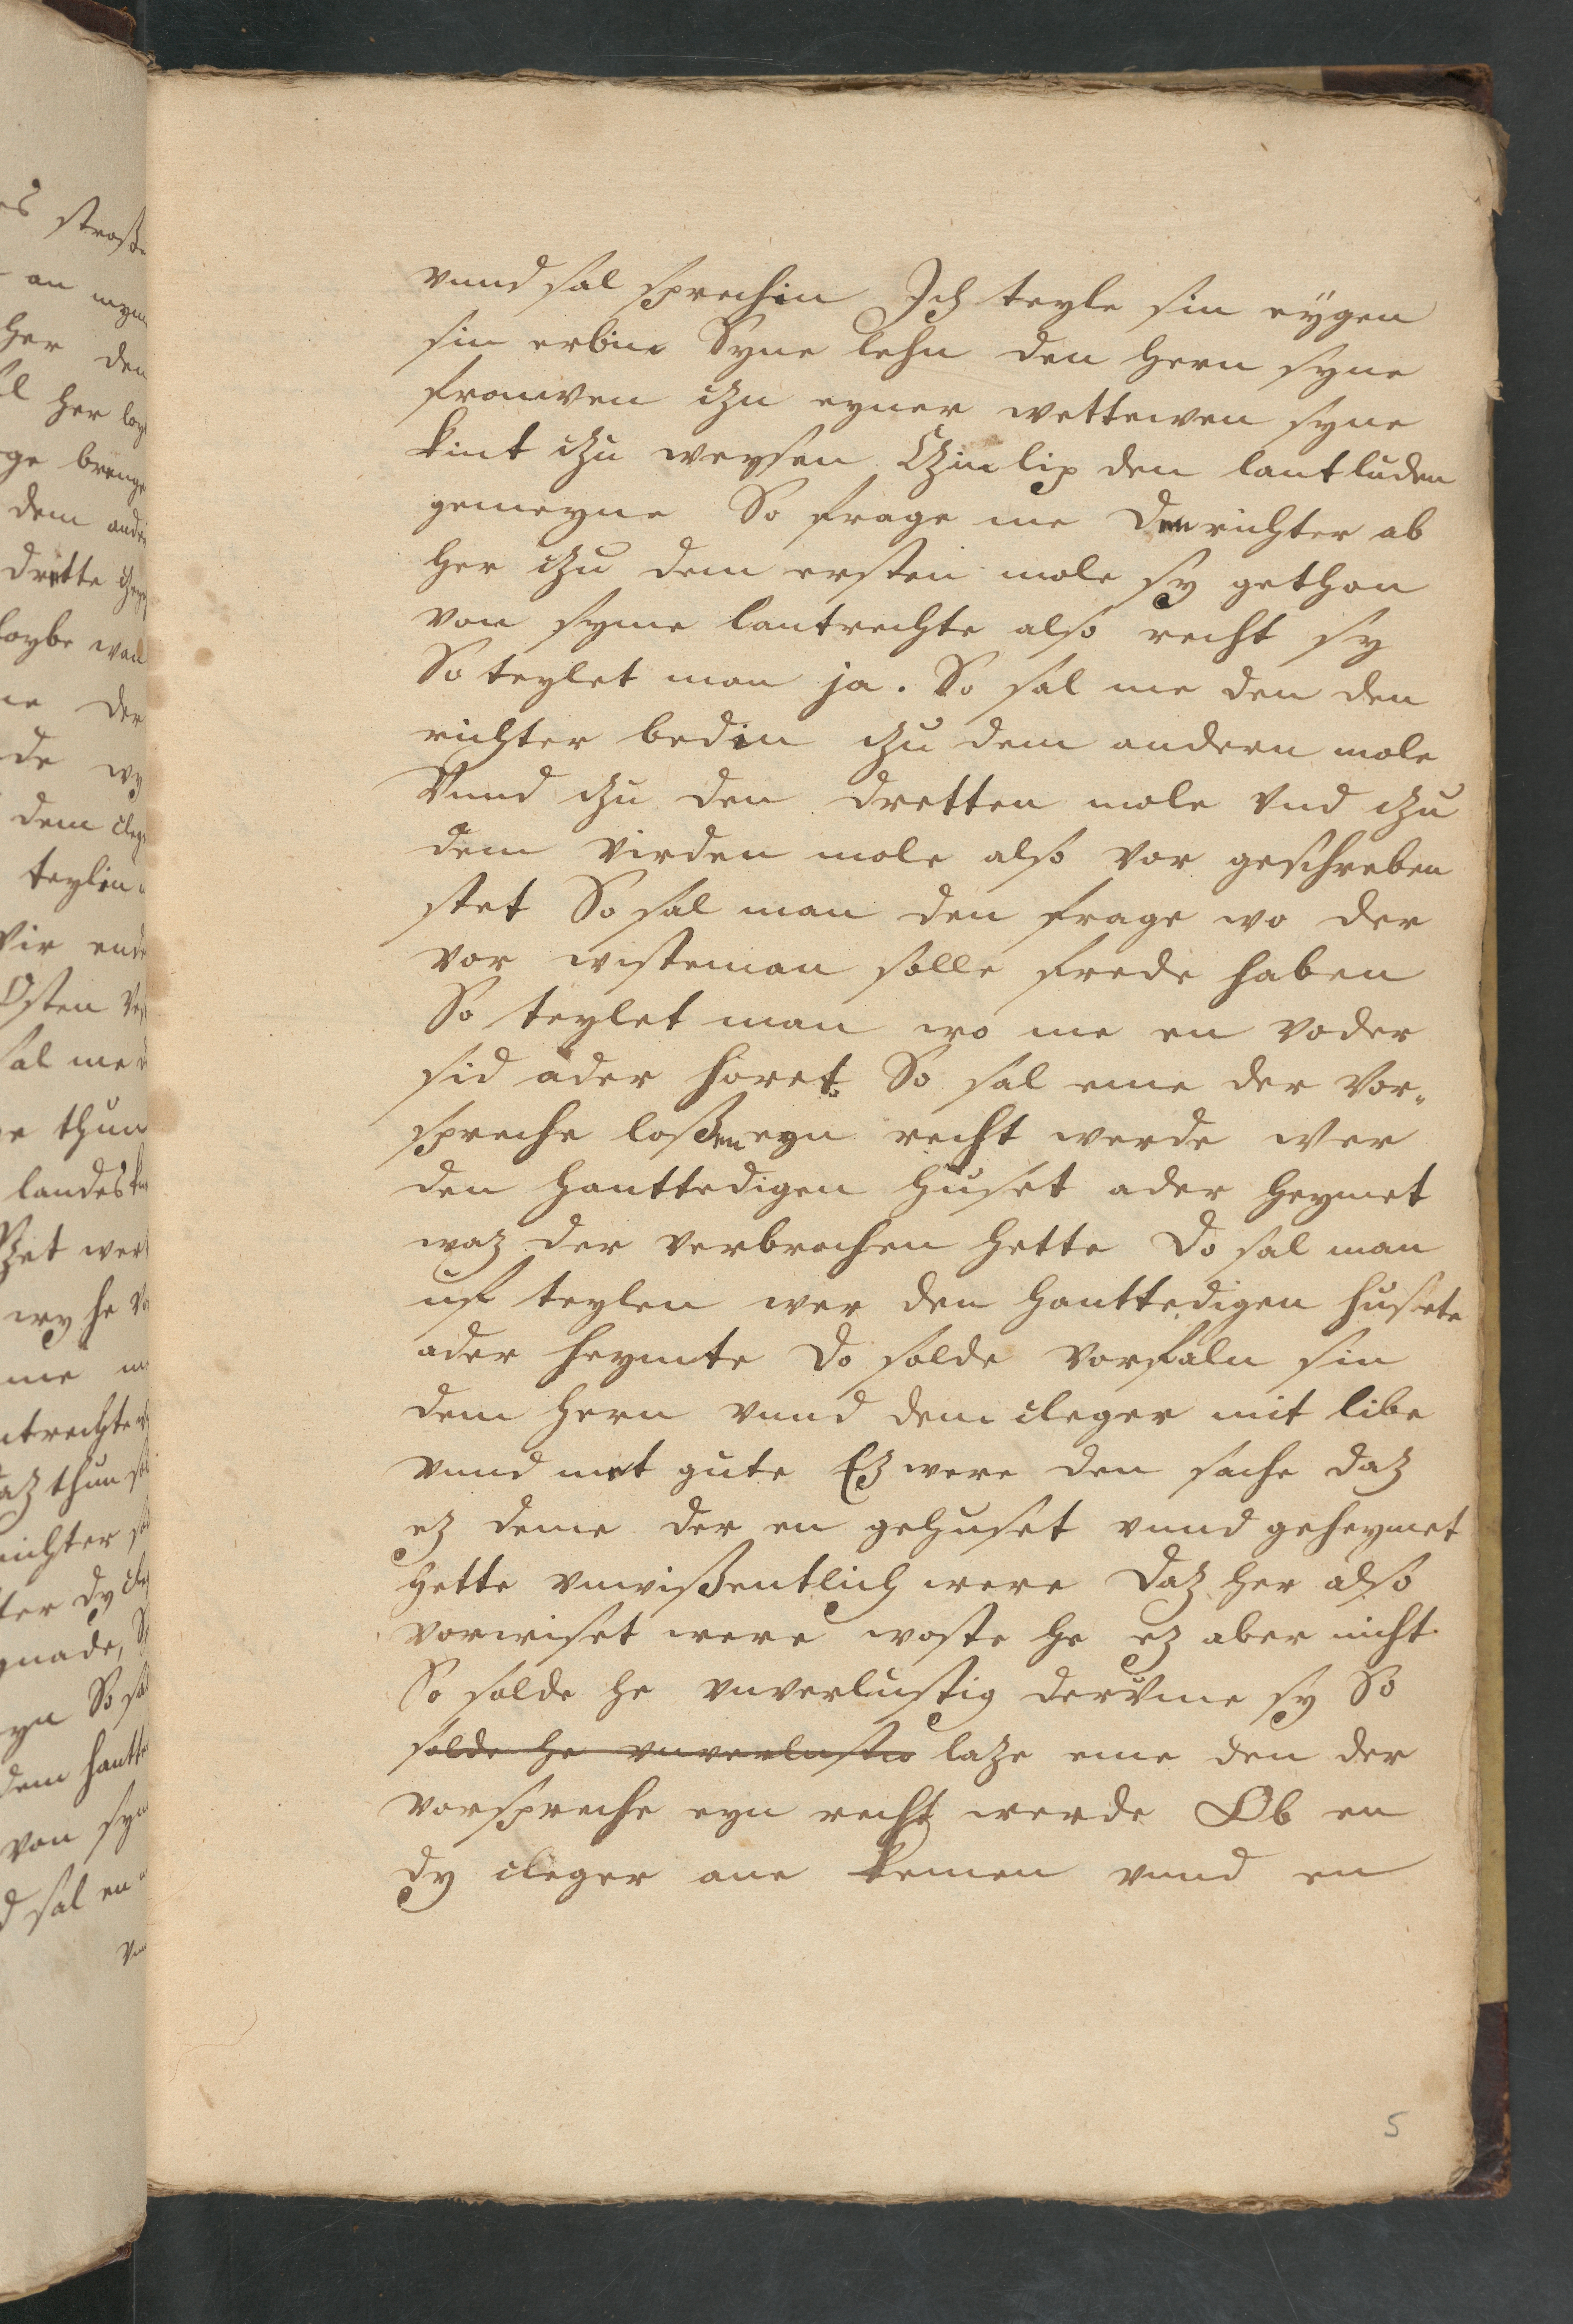 vnnd sal sprechin Ich teyle sin eÿgen
sin erbin Syne lehn den hern syne
frouwen czu eyner wettewen syne
kint czu weysen Czin lip den lantluden
gemeyne So frage me den richter ab
her czu dem ersten mole sy gethon
von syme lantrechte also recht sy
So teylet man ja. So sal me den den
richter bedin czu dem andern mole
Vnnd czu den dretten mole vnd czu
dem virden mole also vor geschreben
stet So sal man den frage wo der
vor wisteman solle frede haben
So teylet man wo me en voder
sid ader horet. So sal eme der vor„
spreche loßen eyn recht werde wer
den hanttedigen huset ader heymet
waz der verbrochen hette Do sal man
uf teylen wer den hanttedigen husete
ader heymte Do solde vorfaln sin
dem hern vnnd dem cleger mit libe
vnnd met gute Ez were den sache daz
ez deme der en gehuset vnnd geheymet
hette vnwißentlich were daz her also
vorwiset were woste he ez aber nicht
So solde he vnverlustig dervme sy So
solde he vnverlustig laze eme den der
vorspreche eyn recht werde Ob en
dy cleger ane kemen vnnd en
5